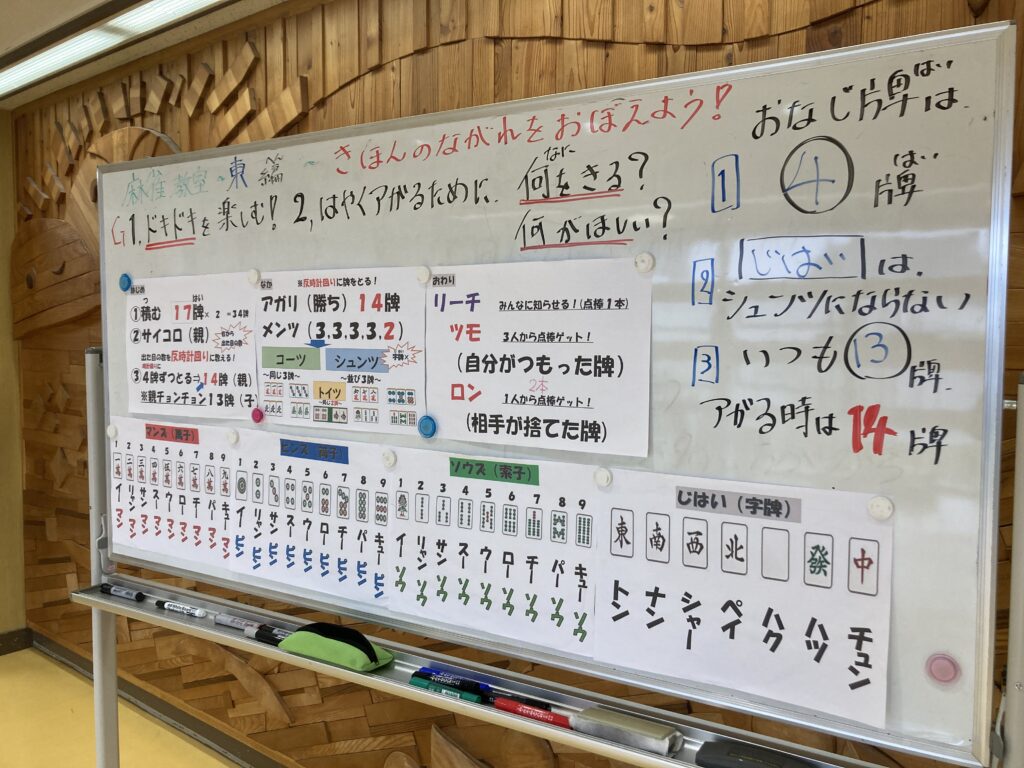 麻雀教室~東編~
きほんのながれをおぼえよう!
G 1, ドキドキを楽しむ! 2, はやくアガるために.
なに
何をきる?
何がほしい?
はい
おなじ牌は.
1
4
はい
牌
2
じはい は.
シュンツにならない
3
いつも 13 牌.
アガる時は 14 牌
はじめ
つ はい
①積む 17牌×2=34牌
②サイコロ(親)
出た目の数を反時計回りに数える!
③4牌ずつとる⇒14牌(親)
※親チョンチョン13牌(子
なか
※反時計回りに牌をとる!
アガリ(勝ち)14牌
メンツ(3.3.3.3.2)
コーツ
シュンツ
字牌×
~同じ3牌~
~並び3牌~
トイツ
おわり
リーチ みんなに知らせる!(点棒1本)
ツモ 3人から点棒ゲット!
(自分がつもった牌)
2本
ロン 1人から点棒ゲット!
(相手が捨てた牌)
マンズ(萬子)
1 2 3 4 5 6 7 8 9
イーマン リャンマン サンマン スーマン ウーマン ローマン チーマン パーマン キューマン
ピンズ(筒子)
1 2 3 4 5 6 7 8 9
イーピン リャンピン サンピン スーピン ウーピン ローピン チーピン パーピン キューピン
ソウズ(索子)
1 2 3 4 5 6 7 8 9
イーソウ リャンソウ サンソウ スーソウ ウーソウ ローソウ チーソウ パーソウ キューソウ
じはい(字牌)
東 南 西 北 發 中
トン ナン シャー ペイ ハク ハツ チュン